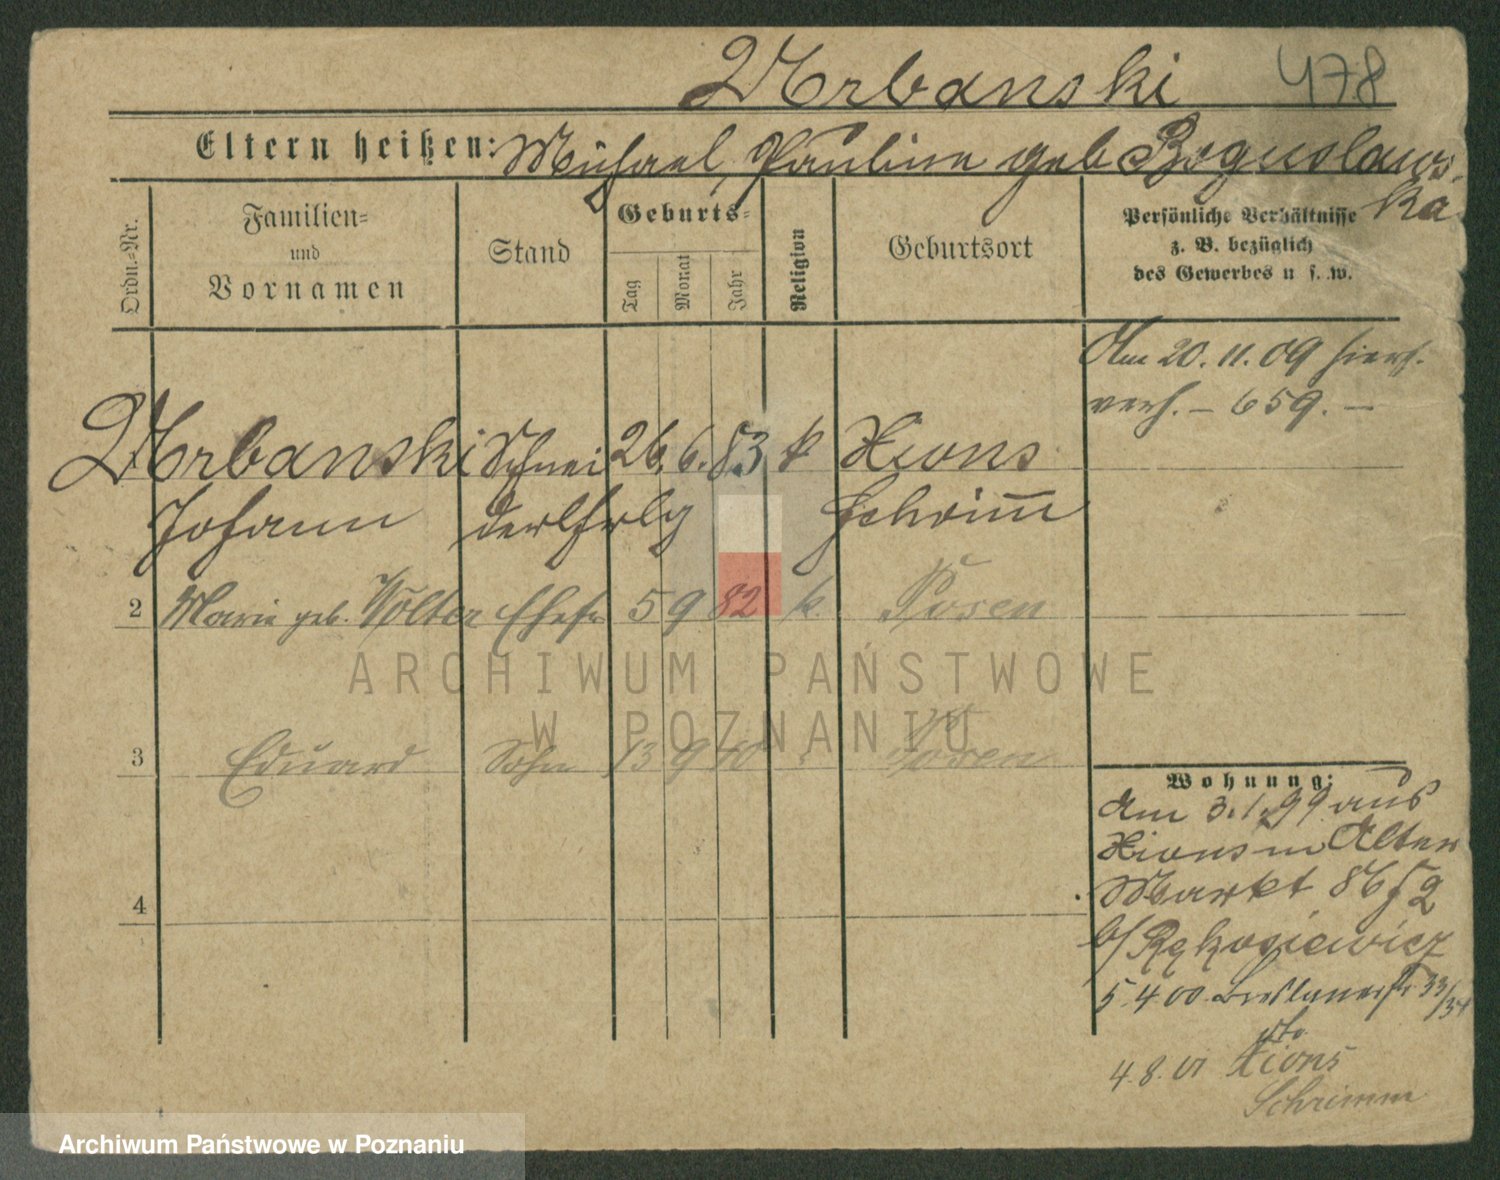 Urbanski 478
Eltern heißen: Michael, Pauline geb Boguslaws-
ka
Ordn.-Nr.
Familien-
und
Vornamen
Stand
Geburts-
Tag Monat Jahr
Religion
Geburtsort
Persönliche Verhältnisse
z. B. bezüglich
des Gewerbes u s. w.
Am 20. 11. 09 hiers.
verh. - 659. -
Urbanski Schnei 26. 6. 83 k Xions
Johann derlehrlg Schrim̅
2 Marie geb. Wolter Ehefr 5 9 82 k. Posen
3 Eduard Sohn 13 9 10 Posen
4
Wohnung:
Am 3. 1. 99 aus
Xions in Alter
Markt 86
b/
5. 4. 00. Breslauerstr 33/34
4. 8. 01 Xions
Schrimm
ARCHIWUM PAŃSTWOWE
W POZNANIU
Archiwum Państwowe w Poznaniu